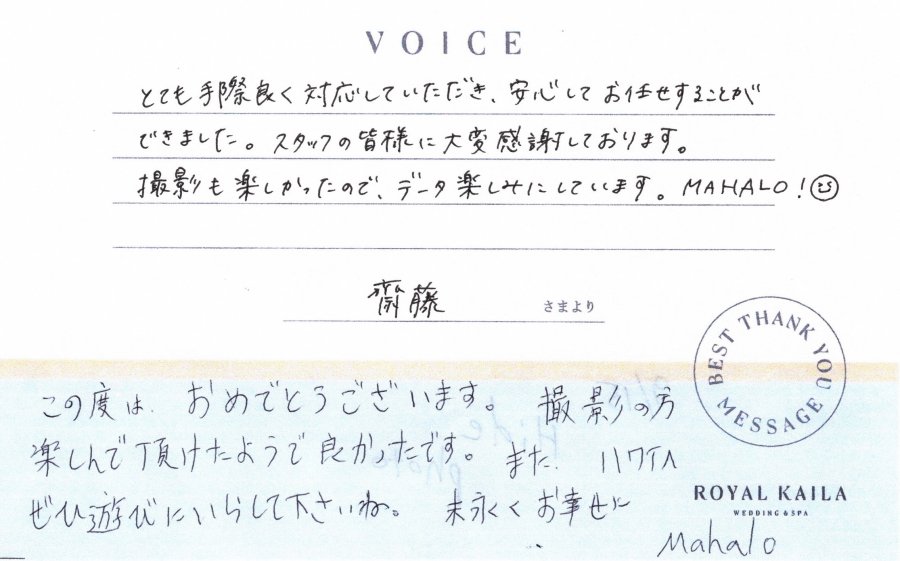 VOICE
とても手際良く対応していただき、安心してお任せすることが
できました。スタッフの皆様に大変感謝しております。
撮影も楽しかったので、データ楽しみにしています。MAHALO!
齋藤 さまより
BEST THANK YOU MESSAGE
この度は、おめでとうございます。撮影の方
楽しんで頂けたようで良かったです。また、ハワイへ
ぜひ遊びにいらして下さいね。末永くお幸せに
ROYAL KAILA
WEDDING & SPA
Mahalo